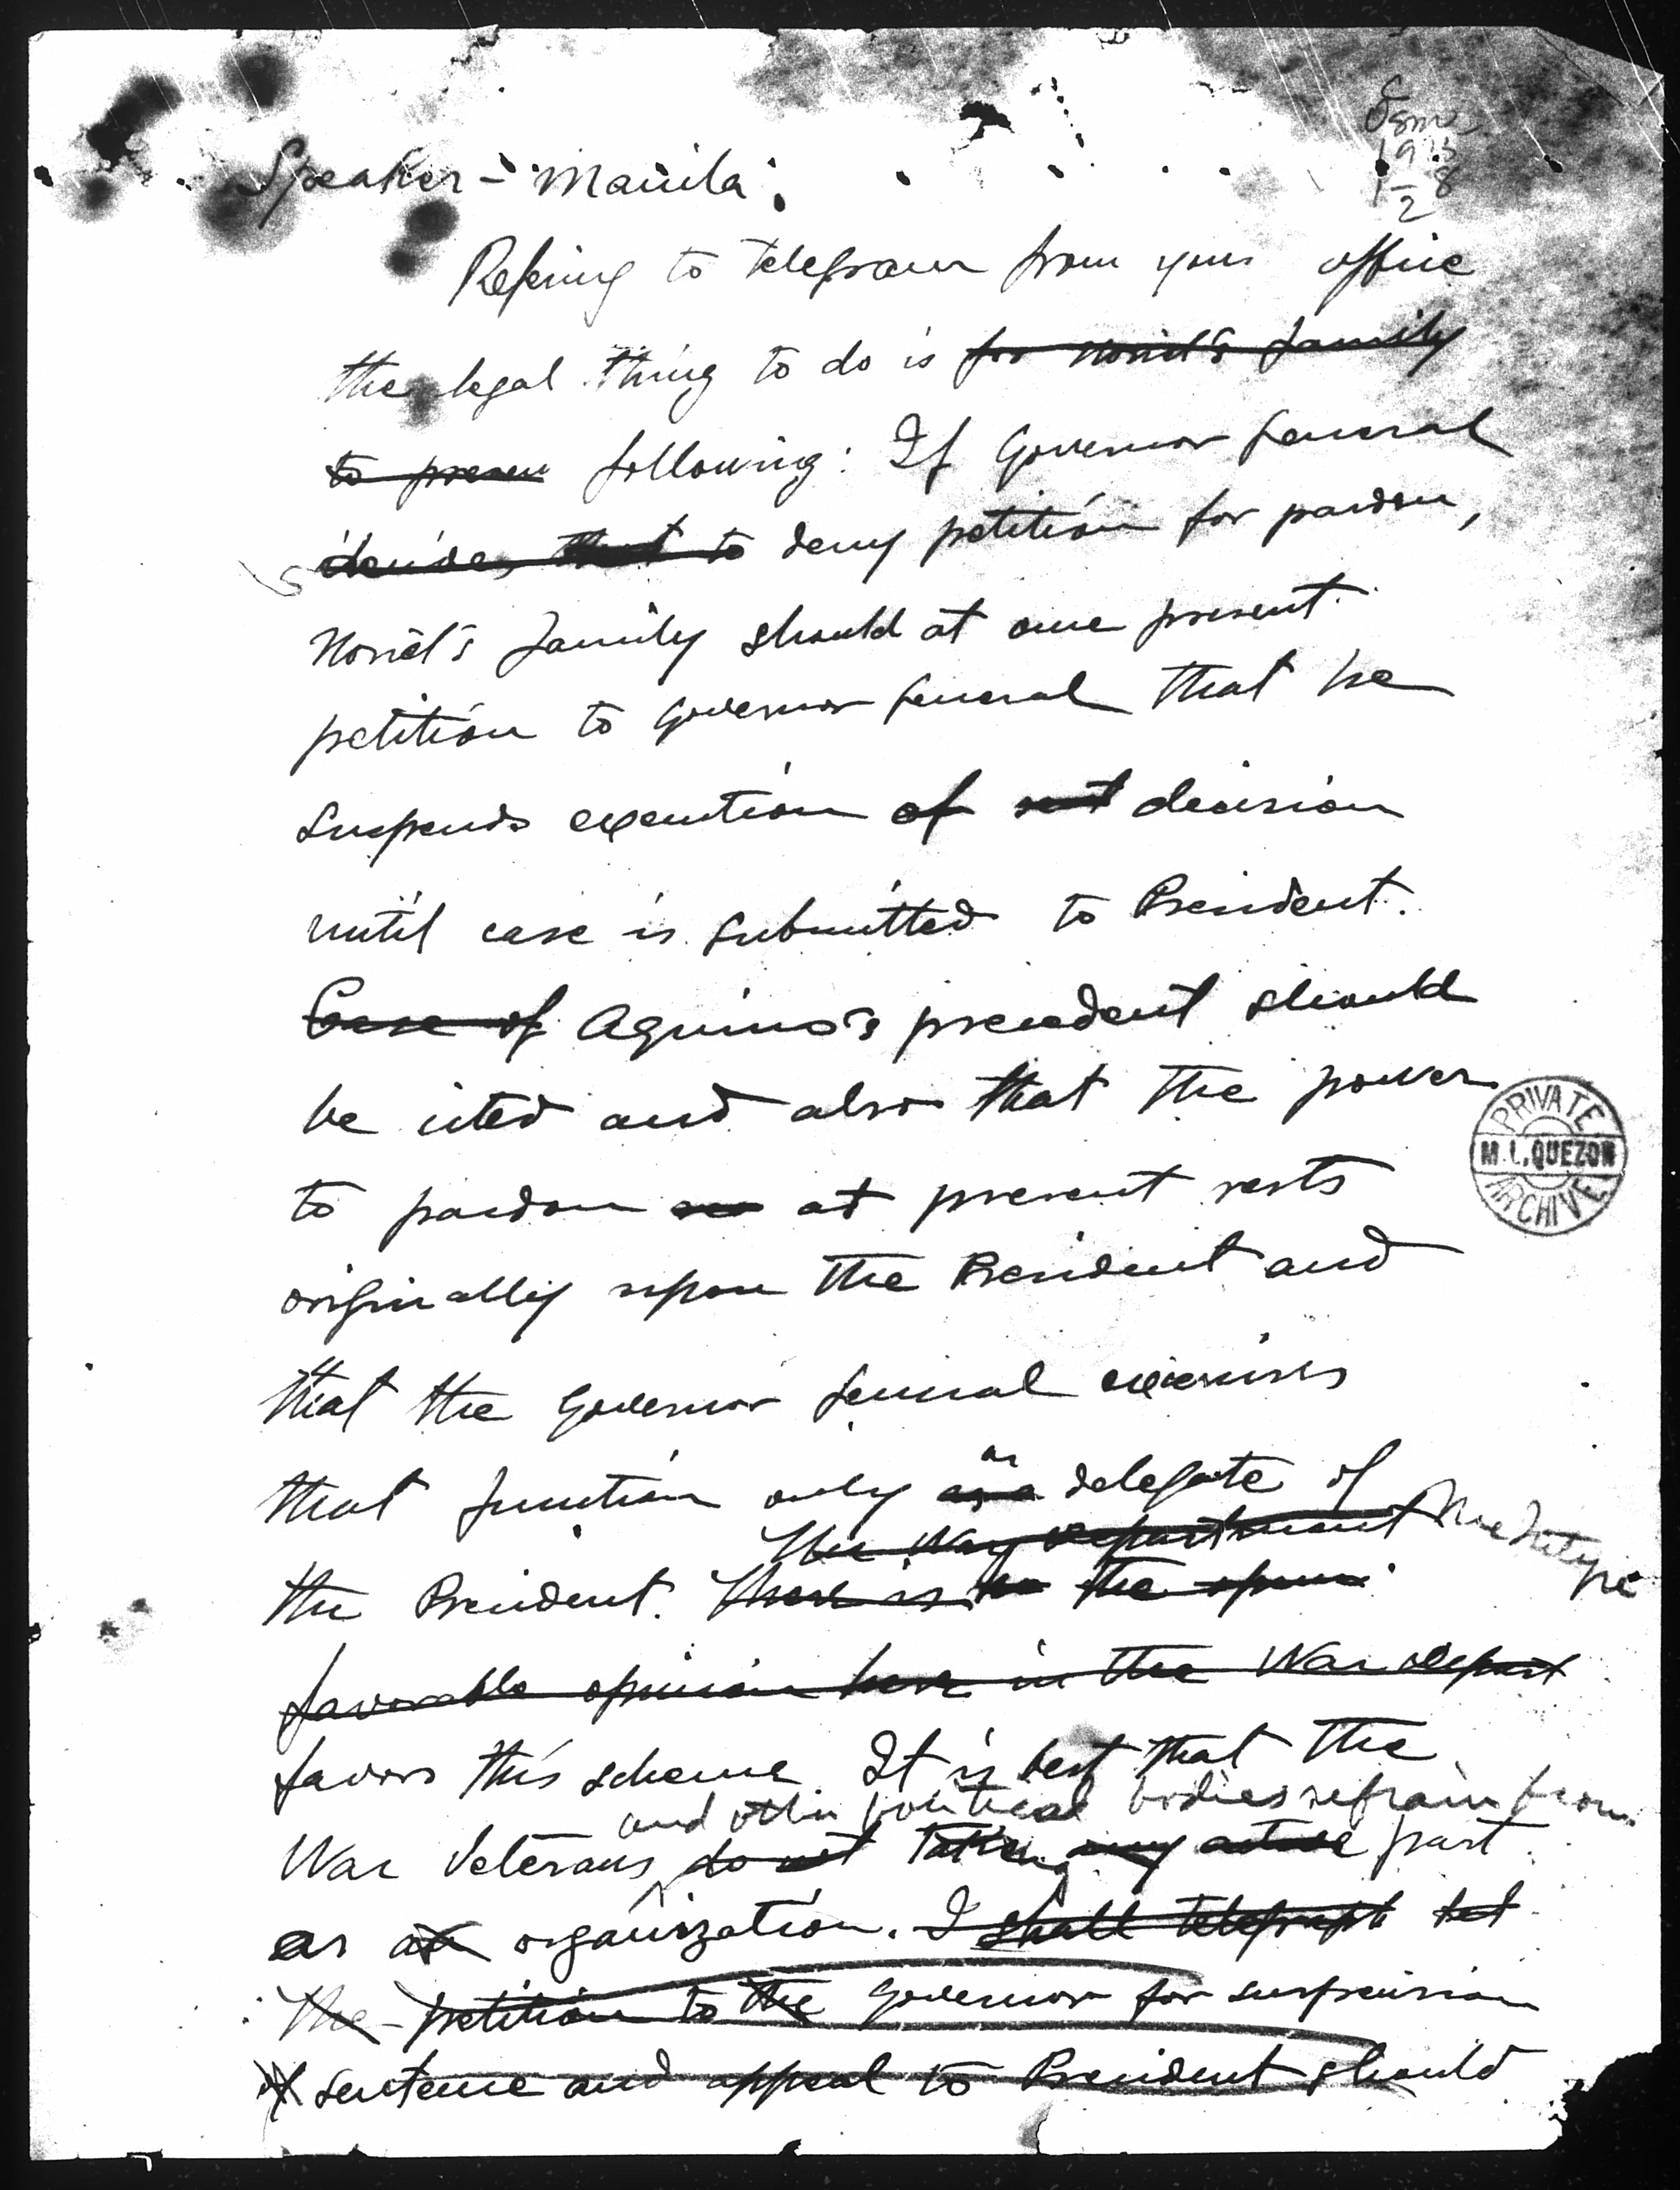 Osm
1915
1-28
2
Speaker - Manila:
Refering to telegram from your office
the legal thing to do is for Noriel's family
to presen following: If Governor General
decides that to deny petition for pardon,
Noriel's family should at once present
petition to Governor General that he
suspends execution of decision
until case is submitted to President.
Case of Aquino's precedent should
be cited and also that the power
PRIVATE
M.L. QUEZON
ARCHIVE
to pardon at present rests
originally upon the President and
that the Governor General exercises
as
that function only as a delegate of
The War Department
the President. There is the opini
favorable opinion here in the War Depart
favors this scheme. It is best that the
and other political bodies refrain from
War Veterans do not taking any active part
as an organization. I shall telegraph
The petition to the Governor for suspension
of sentence and appeal to President should